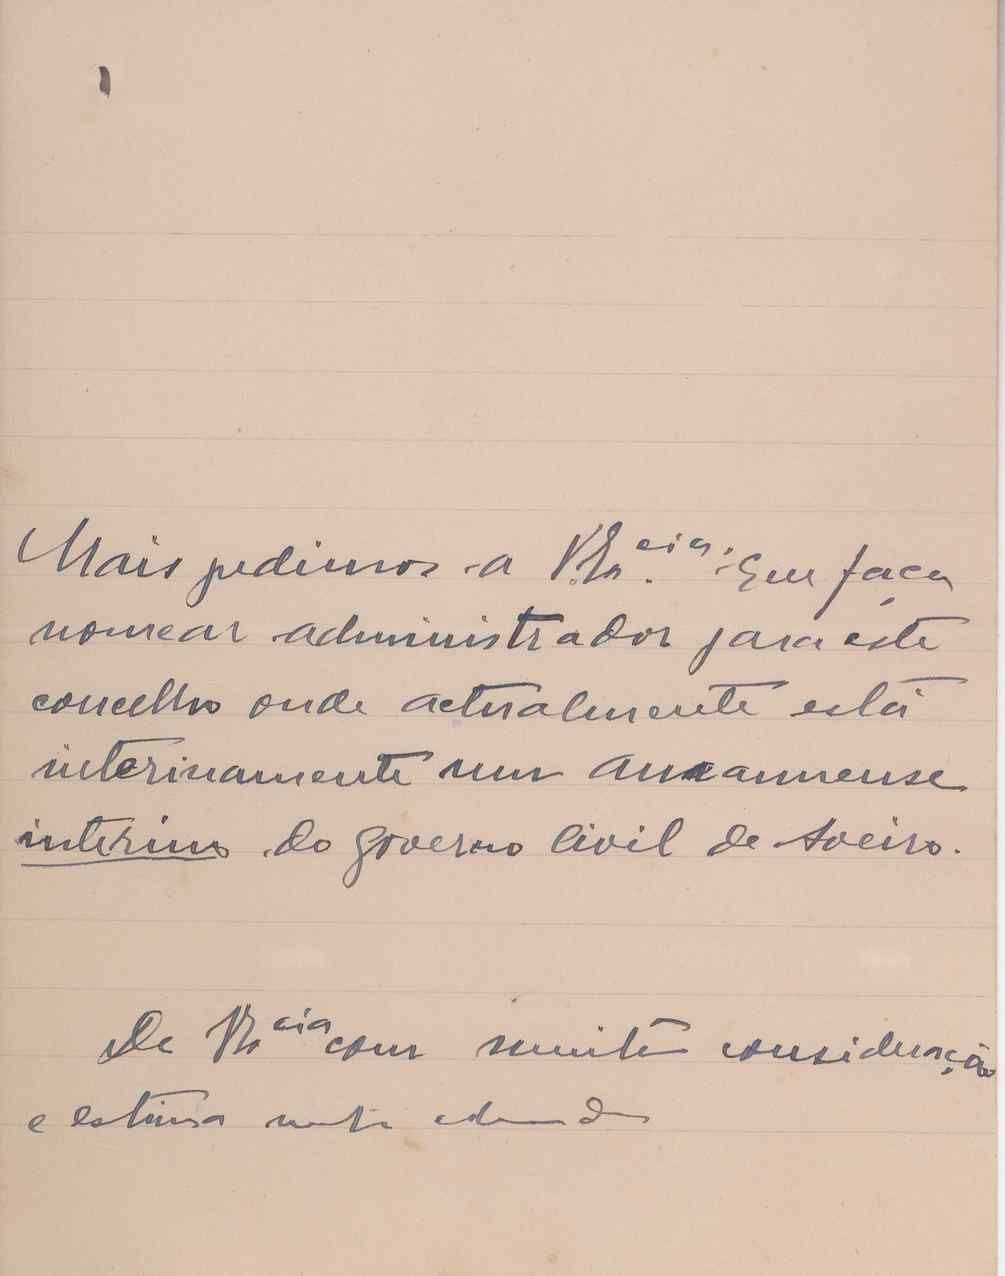 Mais pedimos a V. Ex.cia. que faça
nomear administrador para êste
concelho onde actualmente está
interinamente um amanuense
interino do governo civil de Aveiro.
De V. Ex.cia com muita consideração
e estima